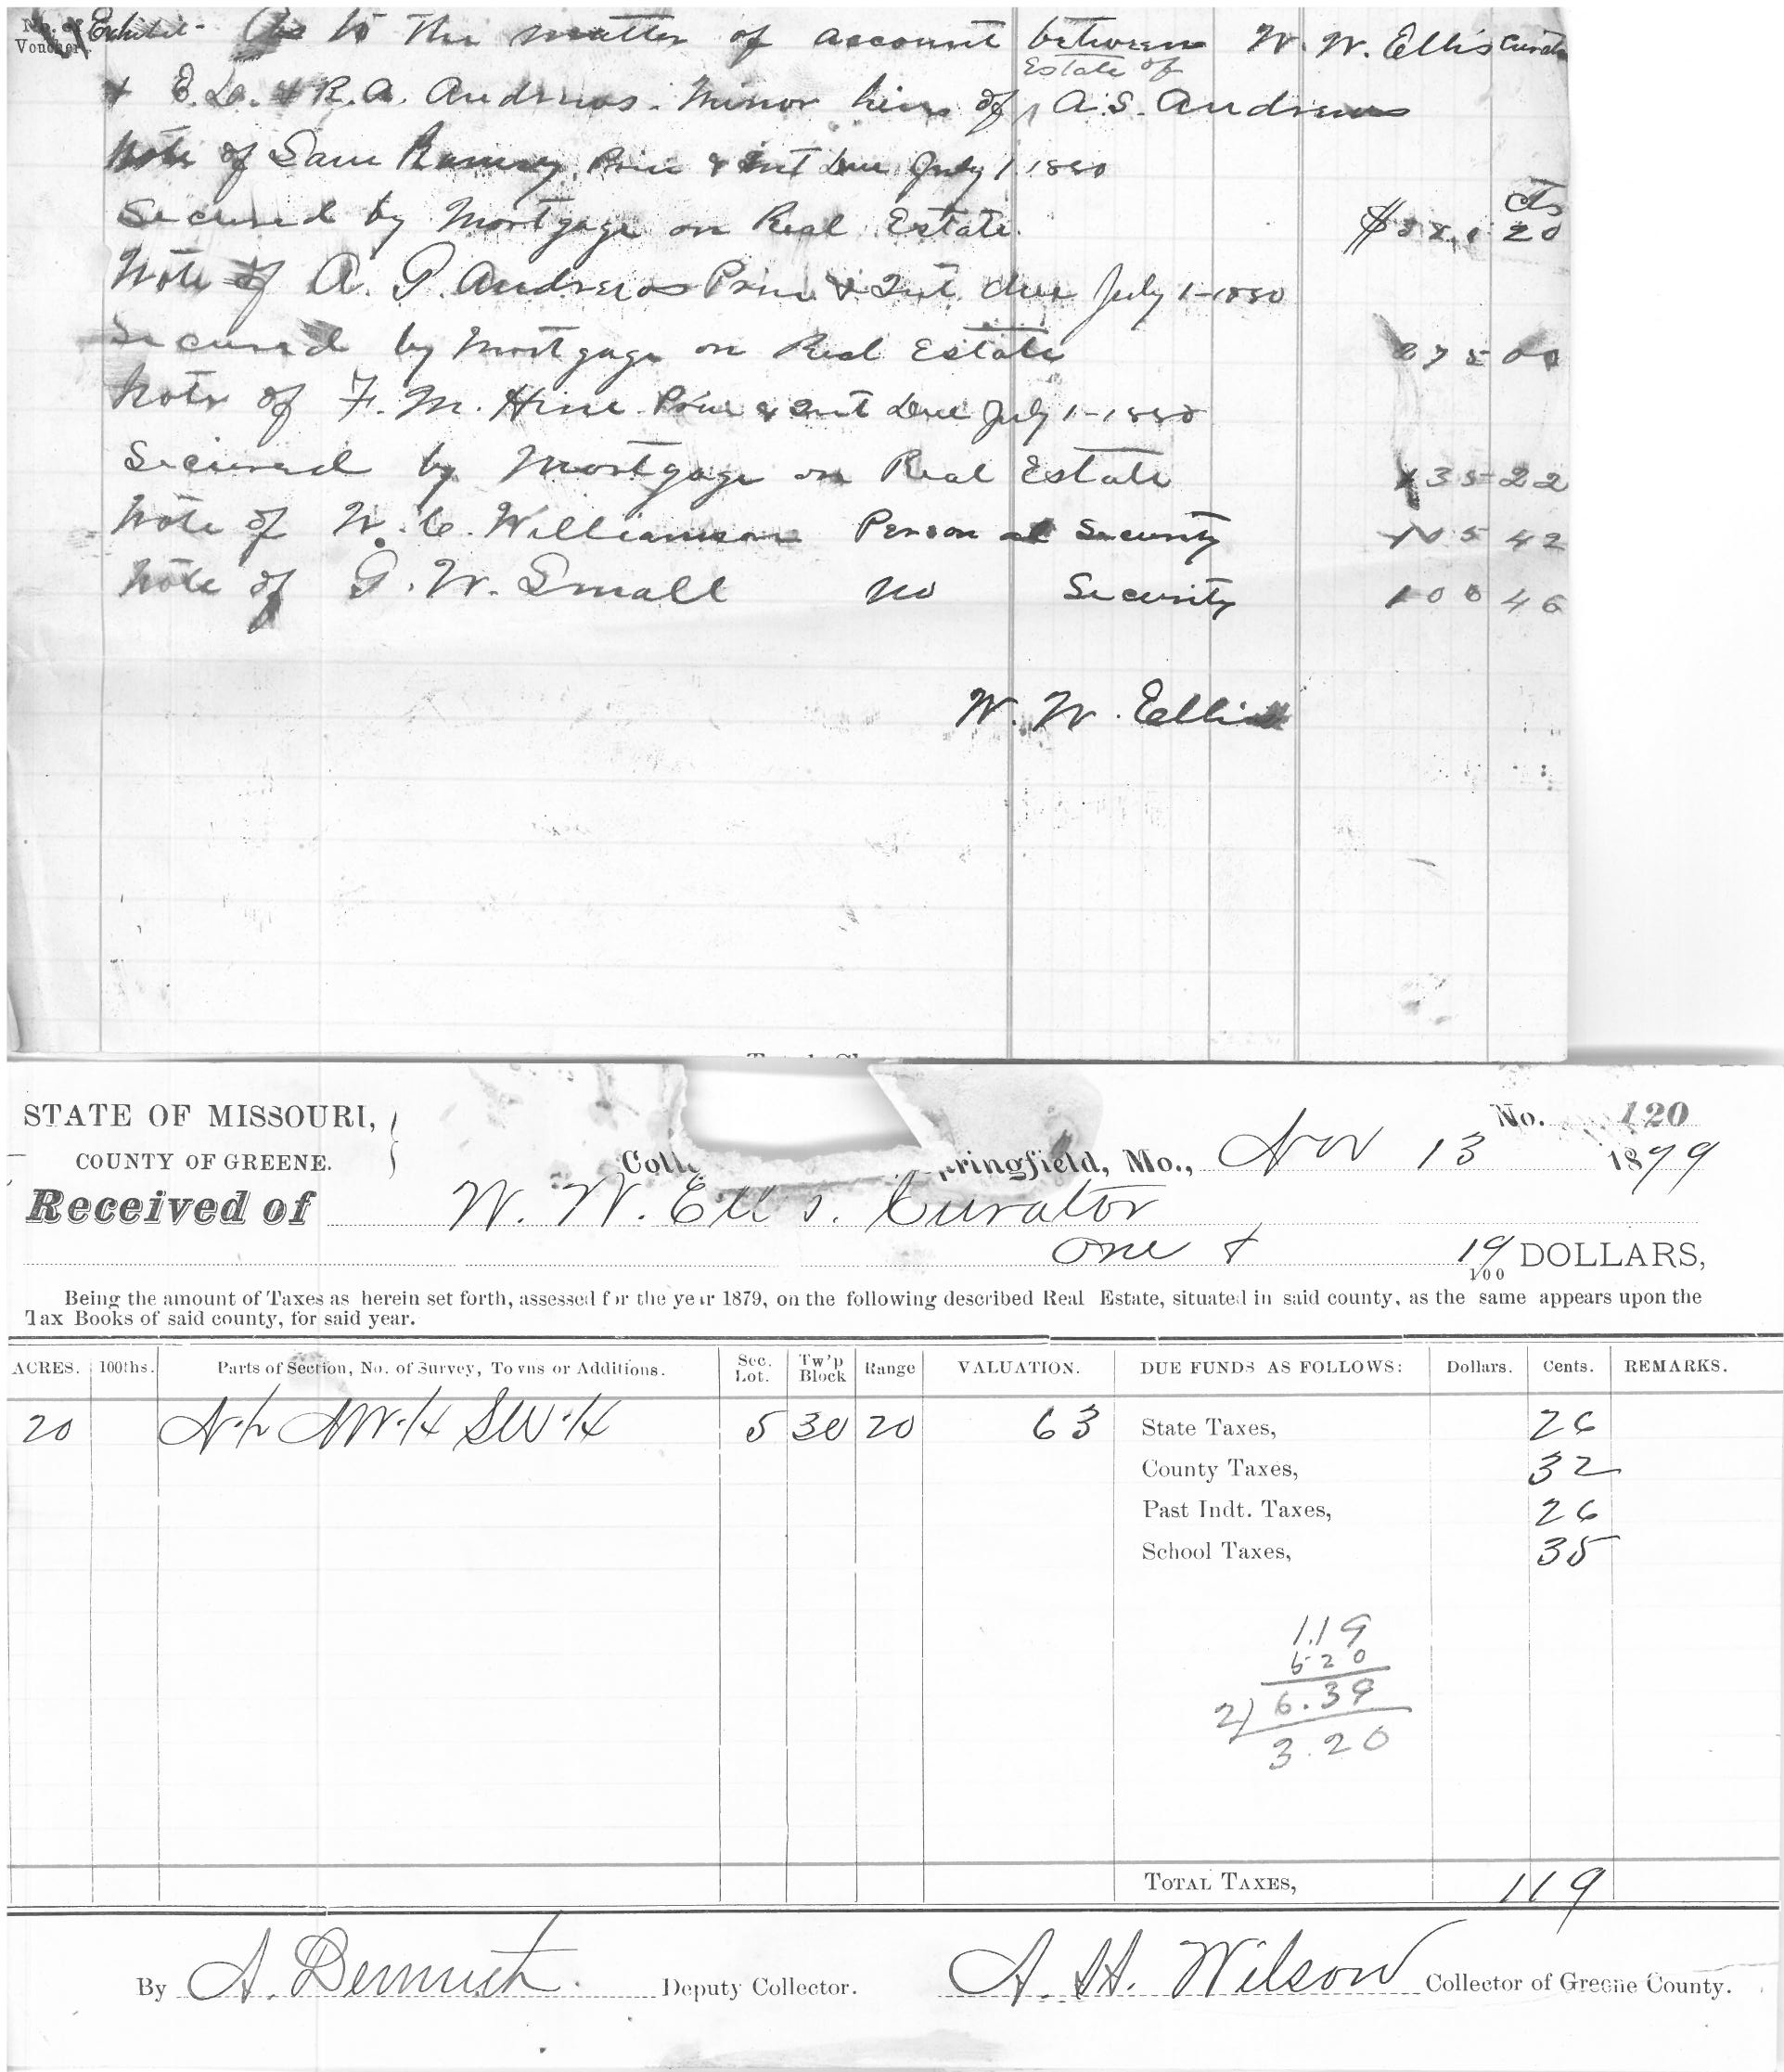 No. of Voucher.
Exhibit - As to the matter of account between W. W. Ellis Curator
Estate of
& E. L. & R. A. Andrews. Minor heirs of A. S. Andrews
Note of Sam Ramsey Prin & Int Due July 1 1880
cts
Secured by Mortgage on Real Estate. $ 20
Note of A. P. Andrews Prin & Int. due July 1-1880
Secured by Mortgage on Real Estate 275 00
Note of F. M. Hine Prin & Int Due July 1-1880
Secured by Mortgage on Real Estate 135 22
Note of W. C. Williamson Personal Security 105 42
Note of G. W. Small no Security 100 46
W. W. Ellis
STATE OF MISSOURI,
COUNTY OF GREENE.
No. 120
Coll pringfield, Mo., Nov 13 1879
Received of W. W. Ellis. Curator
One & 19/100 DOLLARS,
Being the amount of Taxes as herein set forth, assessed for the year 1879, on the following described Real Estate, situated in said county, as the same appears upon the
Tax Books of said county, for said year.
ACRES. 100ths. Parts of Section, No. of Survey, Towns or Additions. Sec. Lot. Tw'p Block Range VALUATION. DUE FUNDS AS FOLLOWS: Dollars. Cents. REMARKS.
20 N ½ NW ¼ SW ¼ 5 30 20 63 State Taxes, 26
County Taxes, 32
Past Indt. Taxes, 26
School Taxes, 35
1.19
5 20
2) 6.39
3.20
TOTAL TAXES, 1 19
By A. Demuth. Deputy Collector. A. H. Wilson Collector of Greene County.